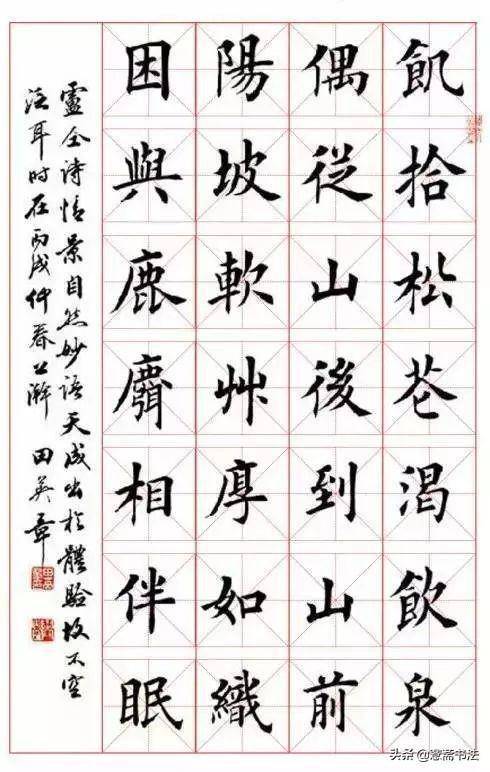 飢拾松苍渴飲泉
偶従山後到山前
陽坡軟艸厚如織
困與鹿麛相伴眠
靈全诗情景自然妙语天成出於體驗故不空
泛耳时在丙戌仲春
田英章
头条@寉斋书法